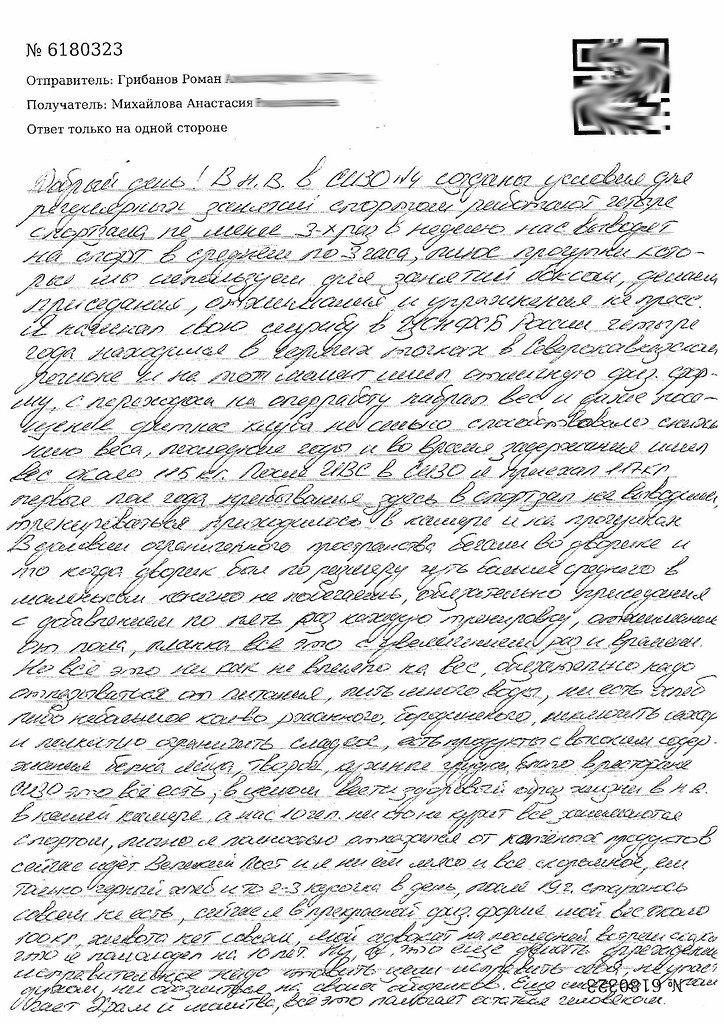 № 6180323
Отправитель: Грибанов Роман
Получатель: Михайлова Анастасия
Ответ только на одной стороне
Добрый день! В н.в. в СИЗО №4 созданы условия для
регулярных занятий спортом работают четыре
спортзала не менее 3-х раз в неделю нас выводят
на спорт в среднем по 3 часа, плюс прогулки кото-
рые мы используем для занятий боксом, делаем
приседания, отжимания и упражнения на пресс.
Я начинал свою службу в ЦСН ФСБ России четыре
года находился в горячих точках в Северокавказском
регионе и на тот момент имел отличную физ. фор-
му, с переходом на оперработу набрал вес и даже посе-
щение фитнес клуба не сильно способствовало сниже-
нию веса, последние годы и во время задержания имел
вес около 115 кг. После ИВС в СИЗО я приехал 117 кг
первые пол года пребывания здесь в спортзал не выводили,
тренироваться приходилось в камере и на прогулках
В условии ограниченного пространства бегали во дворике и
то когда дворик был по размеру чуть больше среднего в
маленьком конечно не побегаешь, обязательно приседания
с добавлением по пять раз каждую тренировку, отжимание
от пола, планка всё это с увеличением раз и времени.
Но всё это ни как не влияло на вес, обязательно надо
отказываться от питания, пить много воды, ни есть хлеб
либо небольшое кол-во ржаного, бородинского, исключить сахар
и полностью ограничить сладкое, есть продукты с высоким содер-
жанием белка яйца, творог, куриные грудки, благо в ресторане
СИЗО это всё есть, в целом вести здоровый образ жизни в н.в.
в нашей камере, а нас 10 чел. ни кто не курит все занимаются
спортом, лично я полностью отказался от копчёных продуктов
сейчас идёт Великий Пост и я ни ем мясо и все скоромное, ем
только чёрный хлеб и то 2-3 кусочка в день, после 19 ч. стараюсь
совсем не есть, сейчас я в прекрасной физ. форме мой вес около
100 кг, живота нет совсем, мой адвокат на последней встрече сказал
что я помолодел на 10 лет. Ну, а что ещё делать учреждение
исправительное надо ставить цели исправить себя, не упасть
духом, ни обозлиться на своих обидчиков. Ещё мне
Храм и молитва, всё это помогает остаться человеком.
№ 6180323